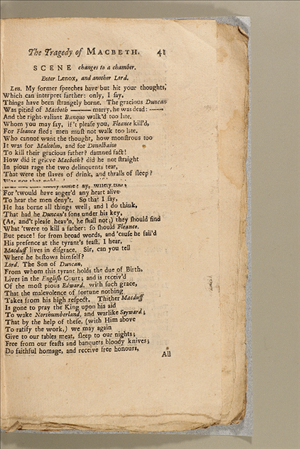 The Tragedy of MACBETH. 41
SCENE changes to a chamber.
Enter Lenox, and another Lord.
Len. My former speeches have but hit your thoughts,
Which can interpret farther: only, I say,
Things have been strangely borne. The gracious Duncan
Was pitied of Macbeth —— marry, he was dead: ——
And the right-valiant Banquo walk'd too late.
Whom you may say, if't please you, Fleance kill'd,
For Fleance fled: men must not walk too late.
Who cannot want the thought, how monstrous too
It was for Malcolm, and for Donalbaine
To kill their gracious father? damned fact!
How did it grieve Macbeth? did he not straight
In pious rage the two delinquents tear,
That were the slaves of drink, and thralls of sleep?
Was not that nobly
For 'twould have anger'd any heart alive
To hear the men deny't. So that I say,
He has borne all things well; and I do think,
That had he Duncan's sons under his key,
(As, and't please heav'n, he shall not,) they should find
What 'twere to kill a father: so should Fleance.
But peace! for from broad words, and 'cause he fail'd
His presence at the tyrant's feast, I hear,
Macduff lives in disgrace. Sir, can you tell
Where he bestows himself?
Lord. The Son of Duncan,
From whom this tyrant holds the due of Birth,
Lives in the English Court; and is receiv'd
Of the most pious Edward, with such grace,
That the malevolence of fortune nothing
Takes from his high respect. Thither Macduff
Is gone to pray the King upon his aid
To wake Northumberland, and warlike Seyward;
That by the help of these, (with Him above
To ratify the work,) we may again
Give to our tables meat, sleep to our nights;
Free from our feasts and banquets bloody knives;
Do faithful homage, and receive free honours,
All